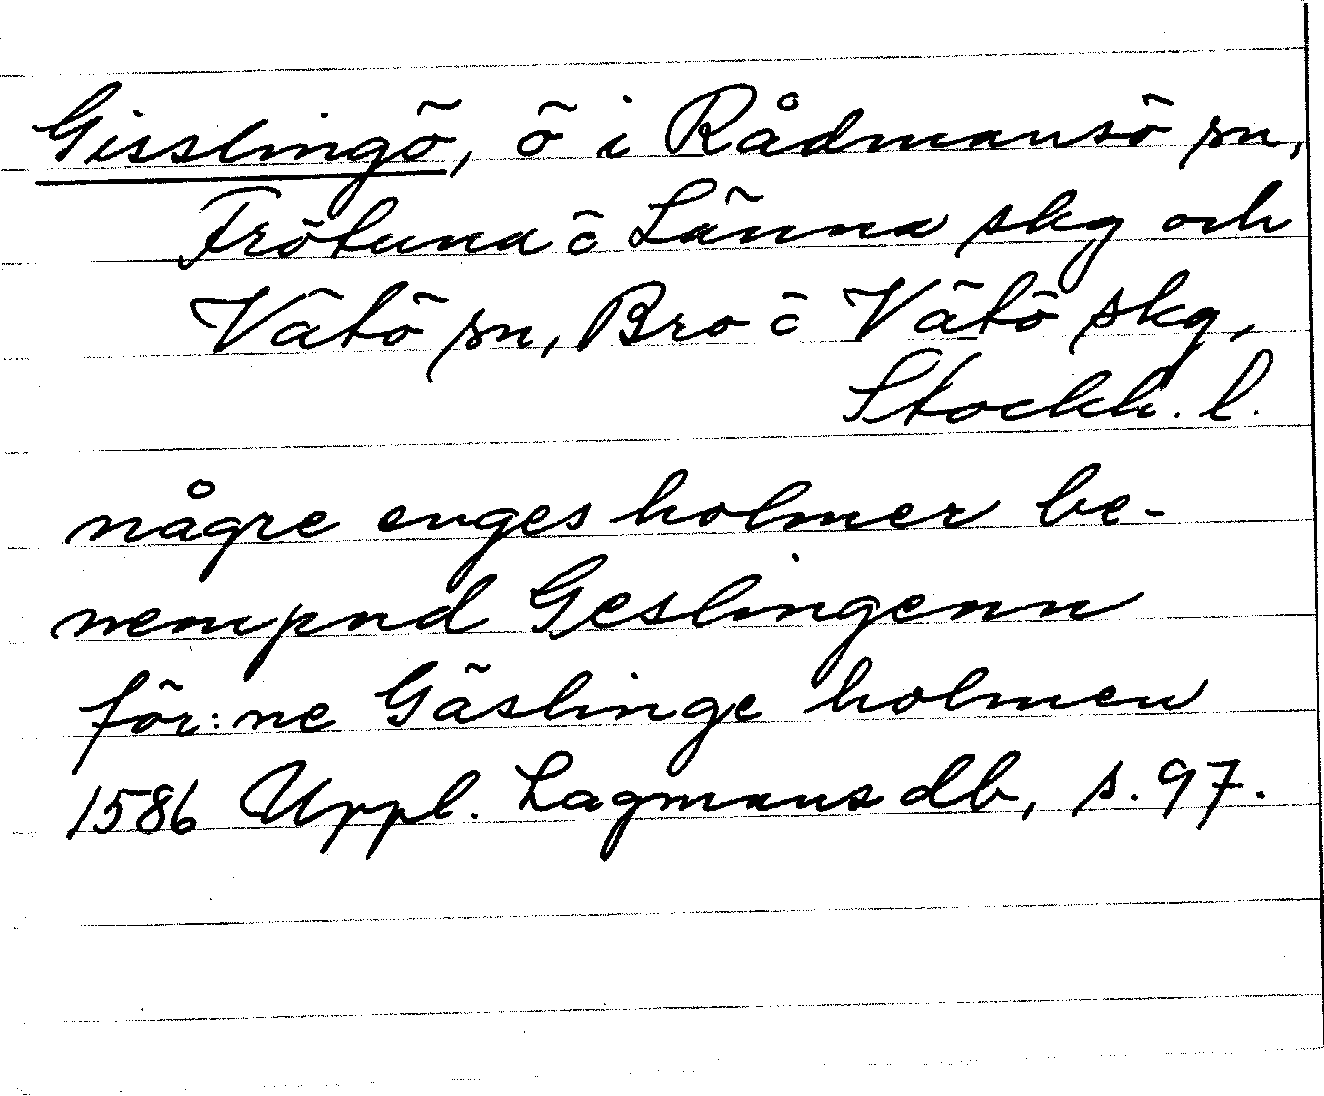 Gisslingö, ö i Rådmansö sn,
Frötuna o Länna skg och
Vätö sn, Bro o Vätö skg,
Stockh. l.
någre enges holmer be-
nempnd Geslingenn
för:ne Gäslinge holmen
1586 Uppl. Lagmansdb, s. 97.